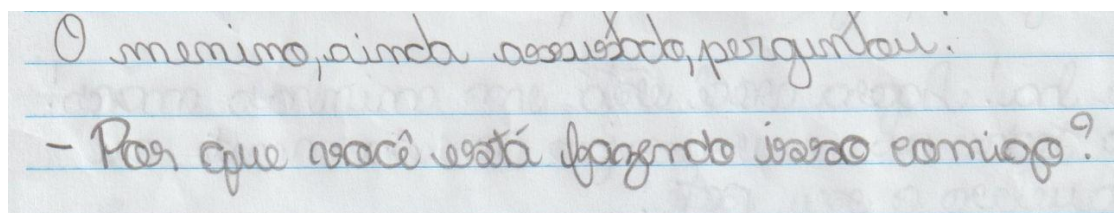 O menino, ainda assustado, perguntou:
- Por que você está fazendo isso comigo?